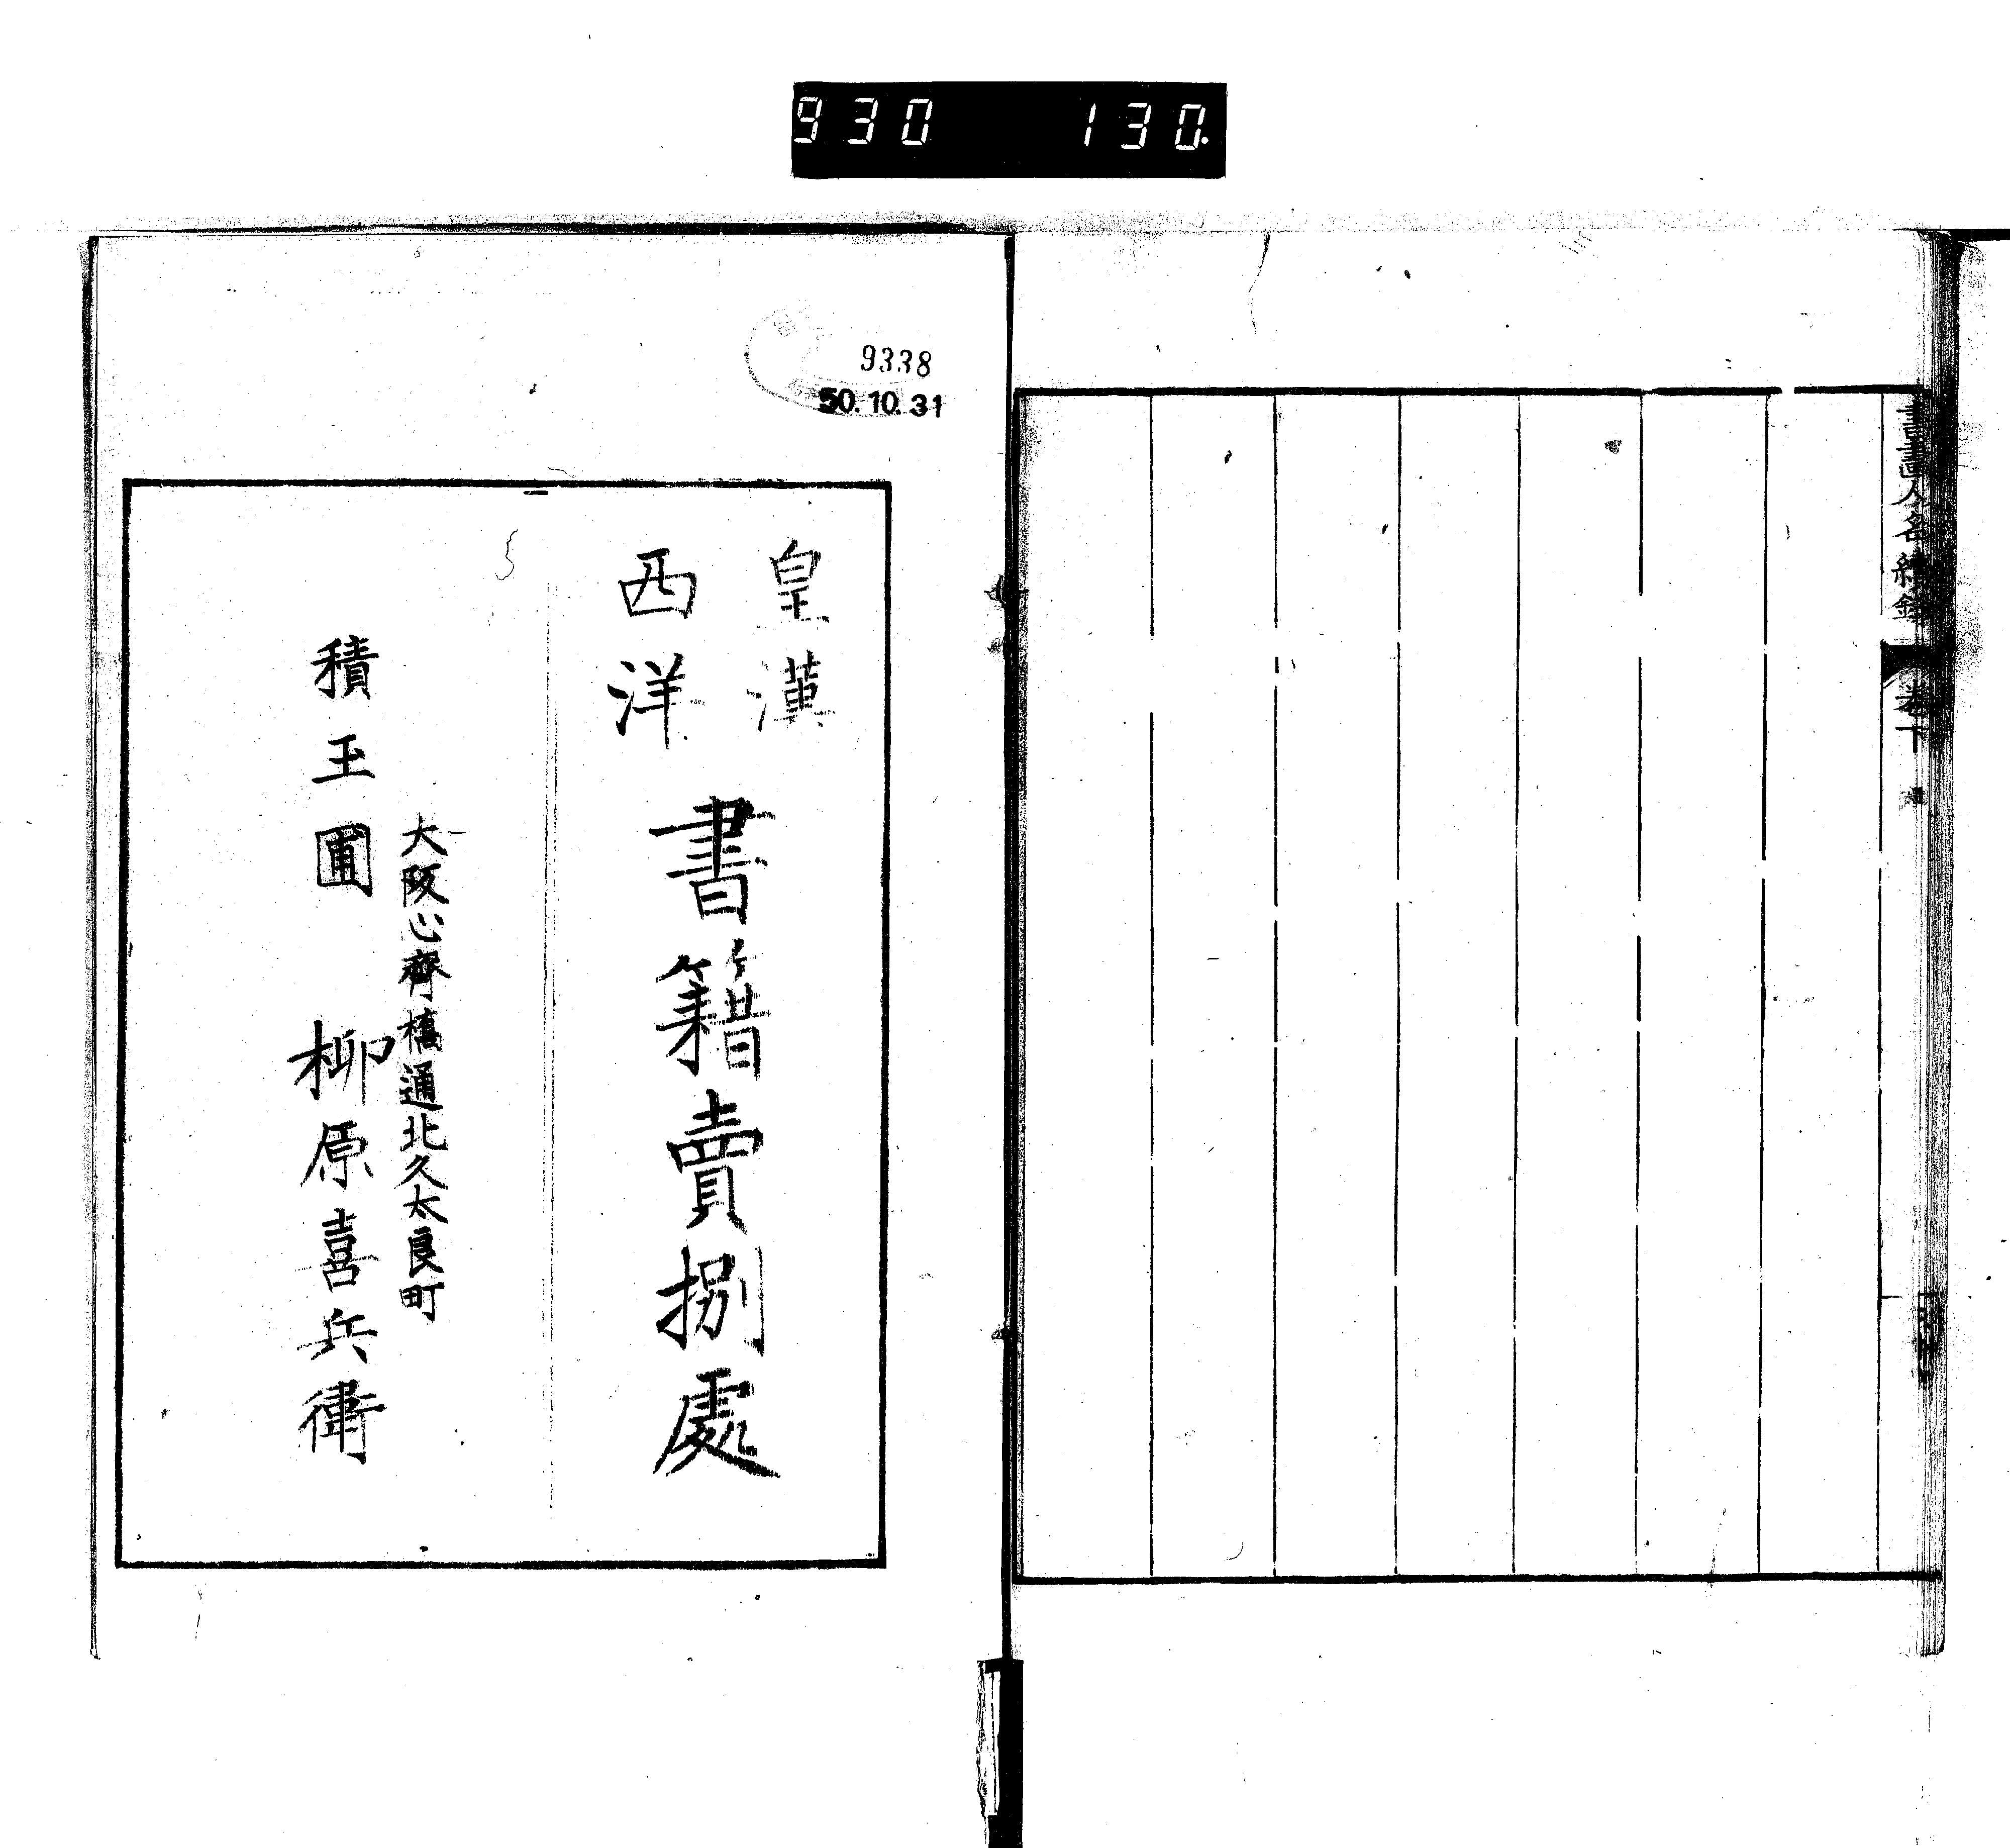 930 130.
書畫人名
卷下
9338
50.10.31
皇漢
西洋
書籍賣捌處
大阪心齊橋通北久太良町
積玉圃 柳原喜兵衛